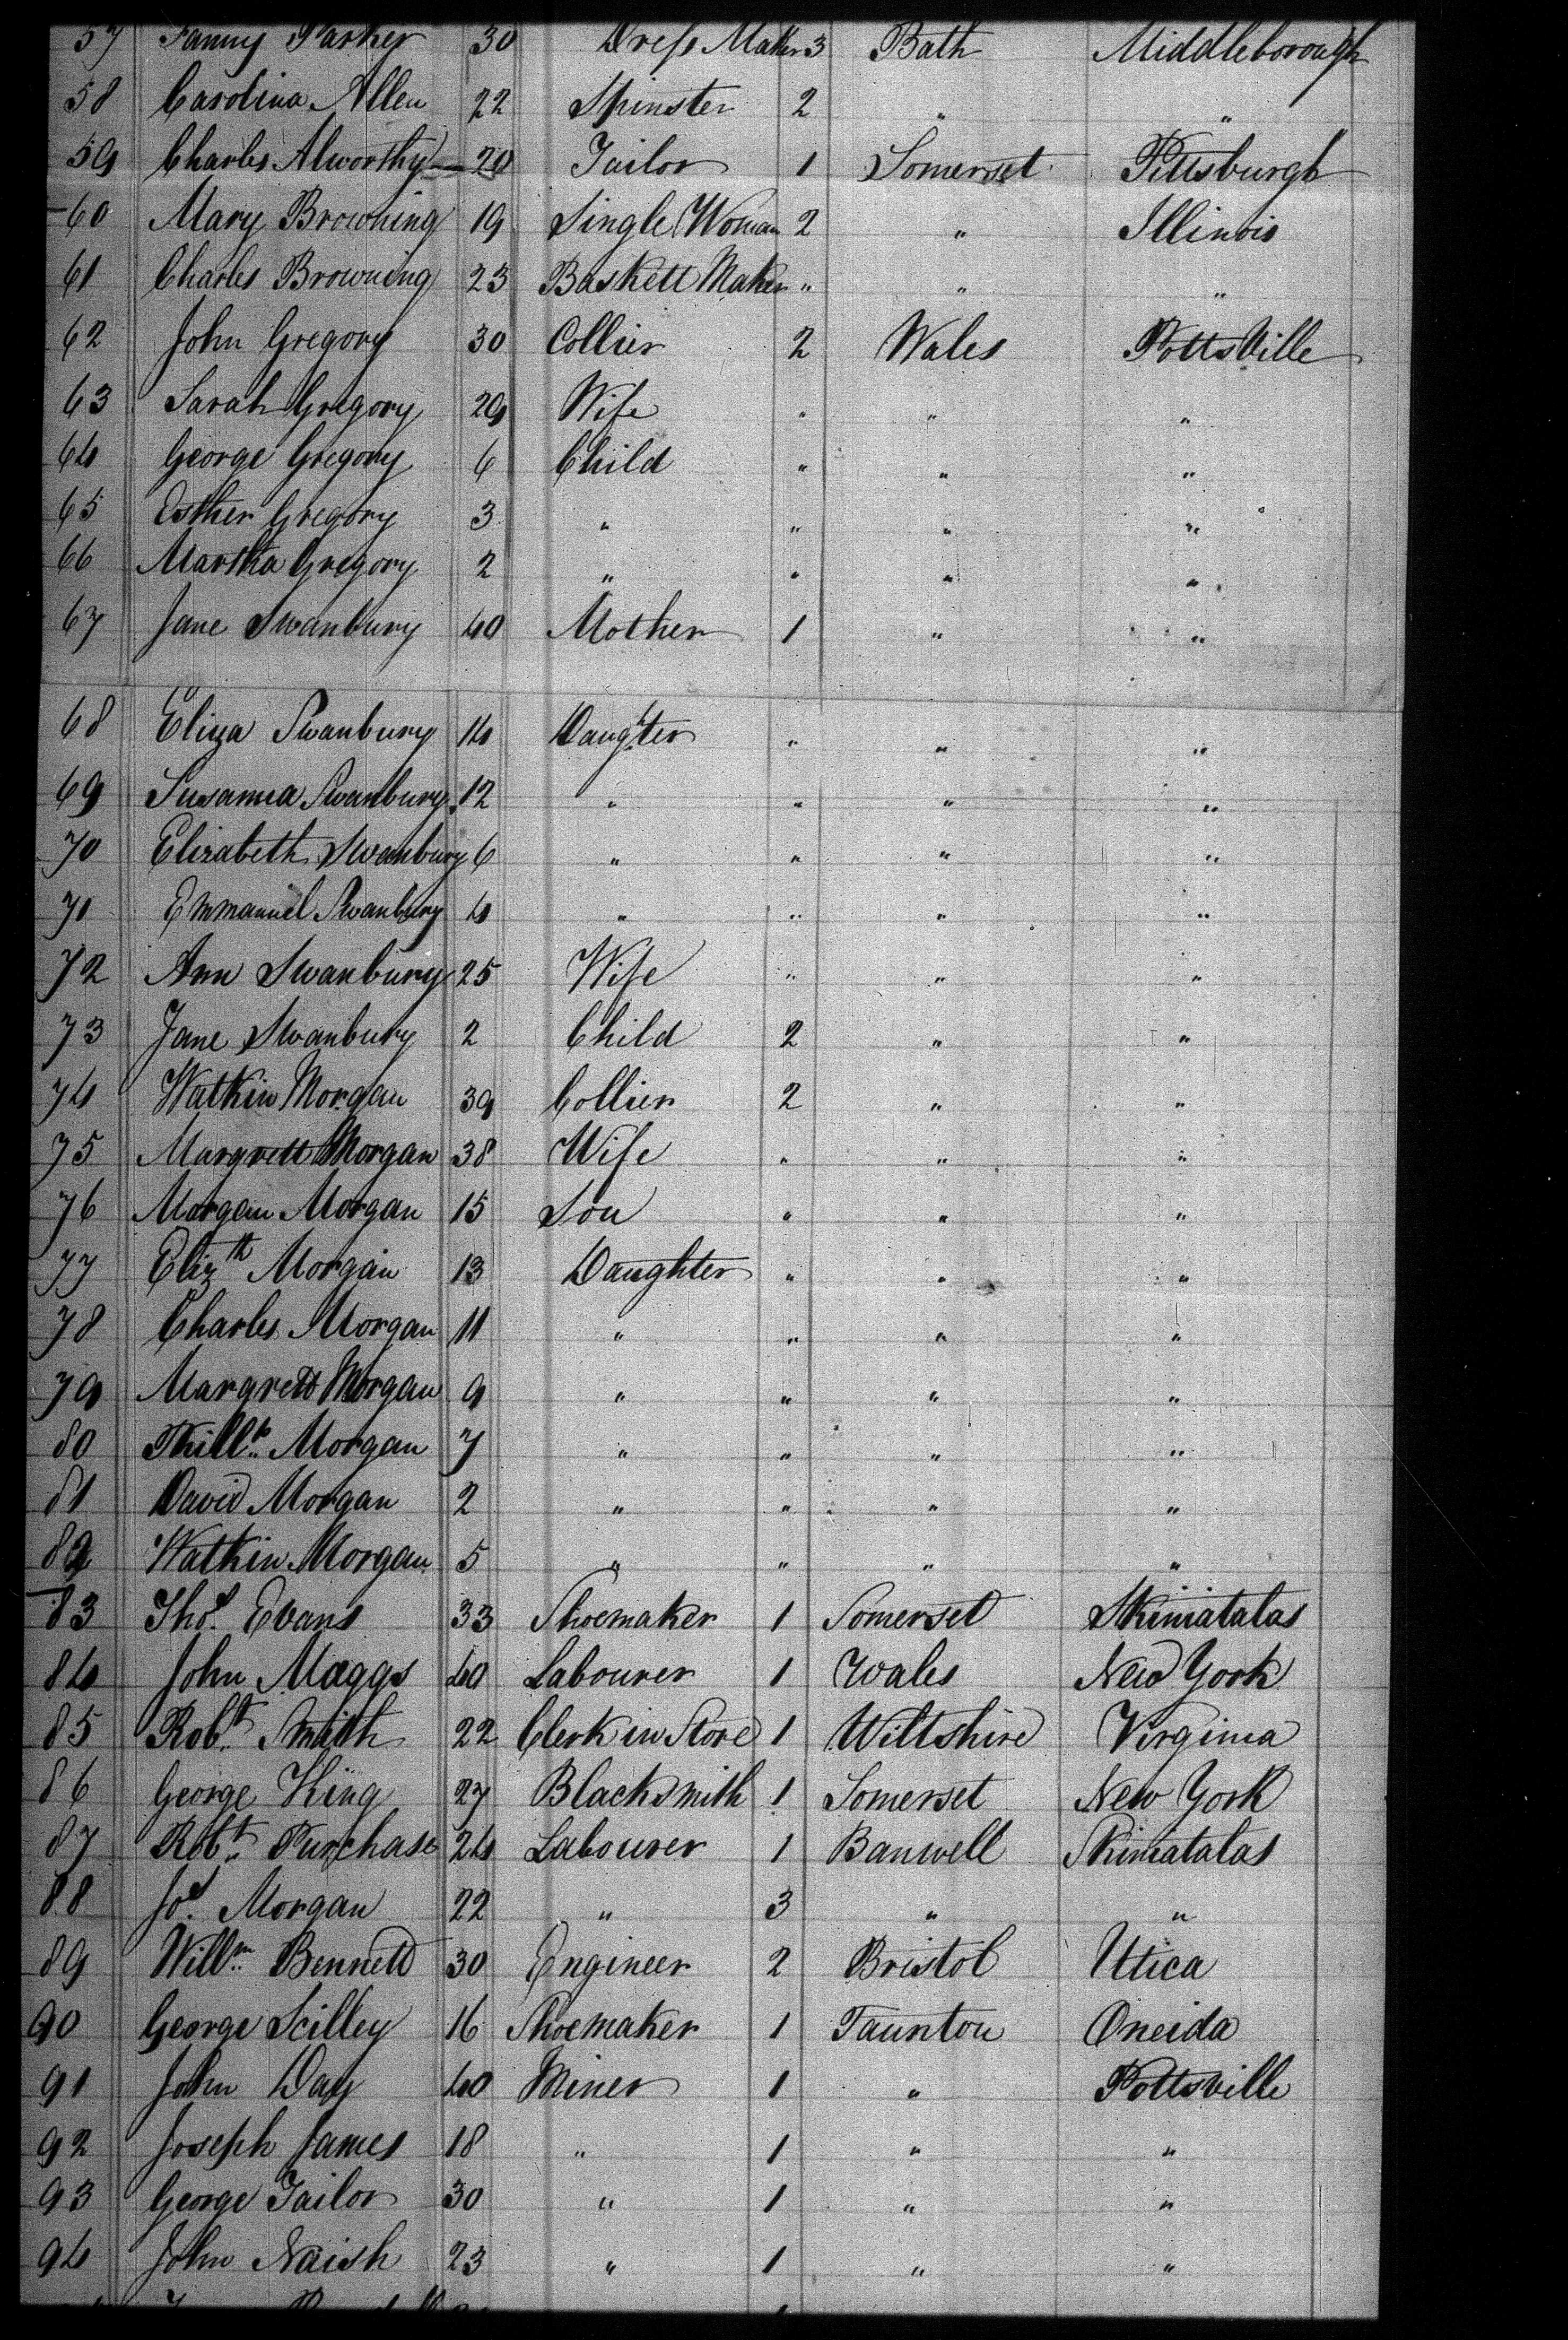 57 Fanny Parker 30 Dress Maker 3 Bath Middleborough
58 Carolina Allen 22 Spinster 2 " "
59 Charles Alworthy 20 Tailor 1 Somerset Pittsburgh
60 Mary Browning 19 Single Woman 2 " Illinois
61 Charles Browning 23 Baskett Maker " " "
62 John Gregory 30 Collier 2 Wales PottsVille
63 Sarah Gregory 29 Wife " " "
64 George Gregory 6 Child " " "
65 Esther Gregory 3 " " " "
66 Martha Gregory 2 " " " "
67 Jane Swanbury 40 Mother 1 " "
68 Eliza Swanbury 14 Daughter " " "
69 Susanna Swanbury 12 " " " "
70 Elizabeth Swanbury 6 " " " "
71 Emmanuel Swanbury 4 " " " "
72 Ann Swanbury 25 Wife " " "
73 Jane Swanbury 2 Child 2 " "
74 Watkin Morgan 39 Collier 2 " "
75 Margrett Morgan 38 Wife " " "
76 Morgan Morgan 15 Son " " "
77 Elizth Morgan 13 Daughter " " "
78 Charles Morgan 11 " " " "
79 Margrett Morgan 9 " " " "
80 Morgan 7 " " " "
81 David Morgan 2 " " " "
82 Watkin Morgan 5 " " " "
83 Thos. Evans 33 Shoemaker 1 Somerset Skiniatalas
84 John Maggs 40 Labourer 1 Wales New York
85 Robt. Smith 22 Clerk in Store 1 Wiltshire Virginia
86 George King 27 Blacksmith 1 Somerset New York
87 Robt. Purchase 24 Labourer 1 Banwell Skiniatalas
88 Jos. Morgan 22 " 3 " "
89 Willm. Bennett 30 Engineer 2 Bristol Utica
90 George Scilley 16 Shoemaker 1 Taunton Oneida
91 John Day 40 Miner 1 " Pottsville
92 Joseph James 18 " 1 " "
93 George Tailor 30 " 1 " "
94 John Naish 23 " 1 " "